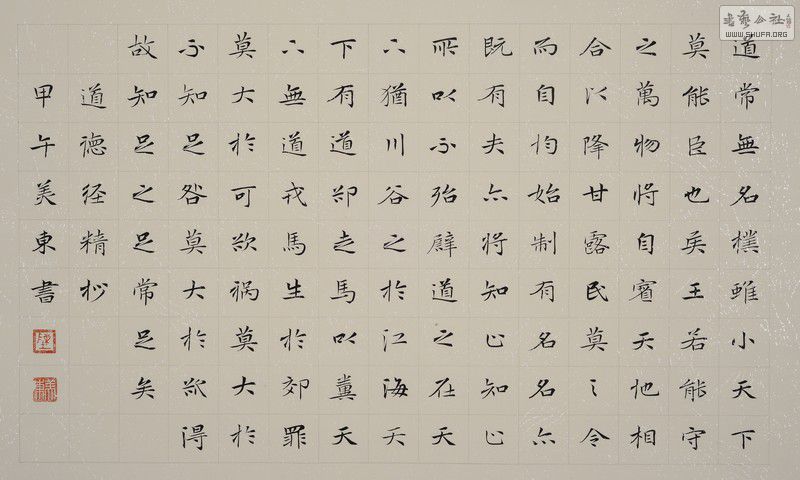 道常無名樸雖小天下
莫能臣也矦王若能守
之萬物將自賓天地相
合以降甘露民莫之令
而自均始制有名名亦
既有夫亦將知止知止
所以不殆譬道之在天
下猶川谷之於江海天
下有道郤走馬以糞天
下無道戎馬生於郊罪
莫大於可欲禍莫大於
不知足咎莫大於欲得
故知足之足常足矣
道德経精抄
甲午美東書
書藝公社
WWW.SHUFA.ORG